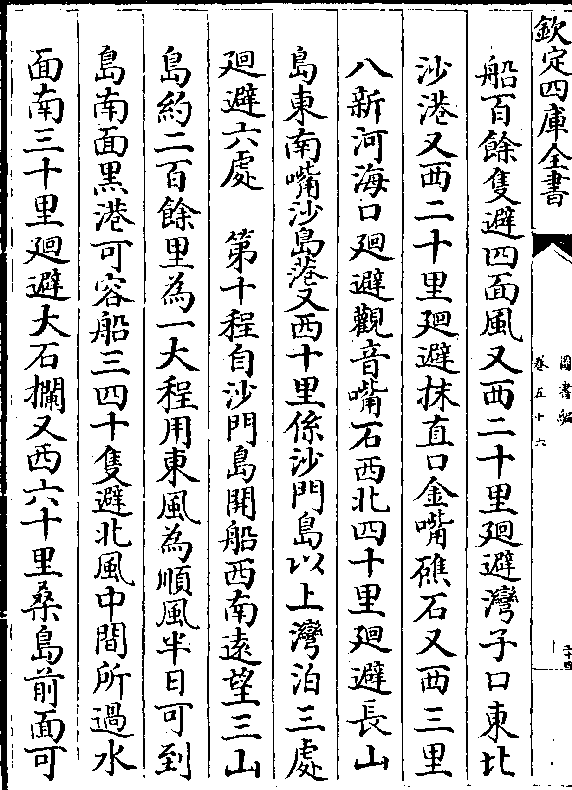 欽定四庫全書
圖書編
卷五十六
二十四
船百餘隻避四面風又西二十里廻避灣子口東北
沙港又西二十里廻避抹直口金嘴礁石又西三里
八新河海口廻避觀音嘴石西北四十里廻避長山
島東南嘴沙島港又西十里係沙門島以上灣泊三處
廻避六處　第十程自沙門島開船西南遠望三山
島約二百餘里為一大程用東風為順風半日可到
島南面黑港可容船三四十隻避北風中間所過水
面南三十里廻避大石欄又西六十里桑島前面可